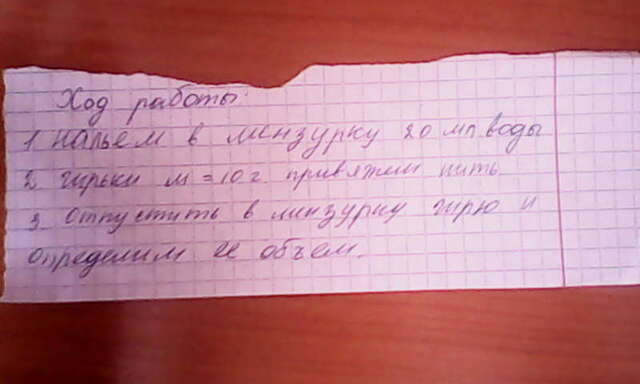 Ход работы:
1. нальем в мензурку 20 мл воды
2. гирьки м = 10 г. привяжем нить
3. Отпустить в минзурку гирю и
определим ее объем.